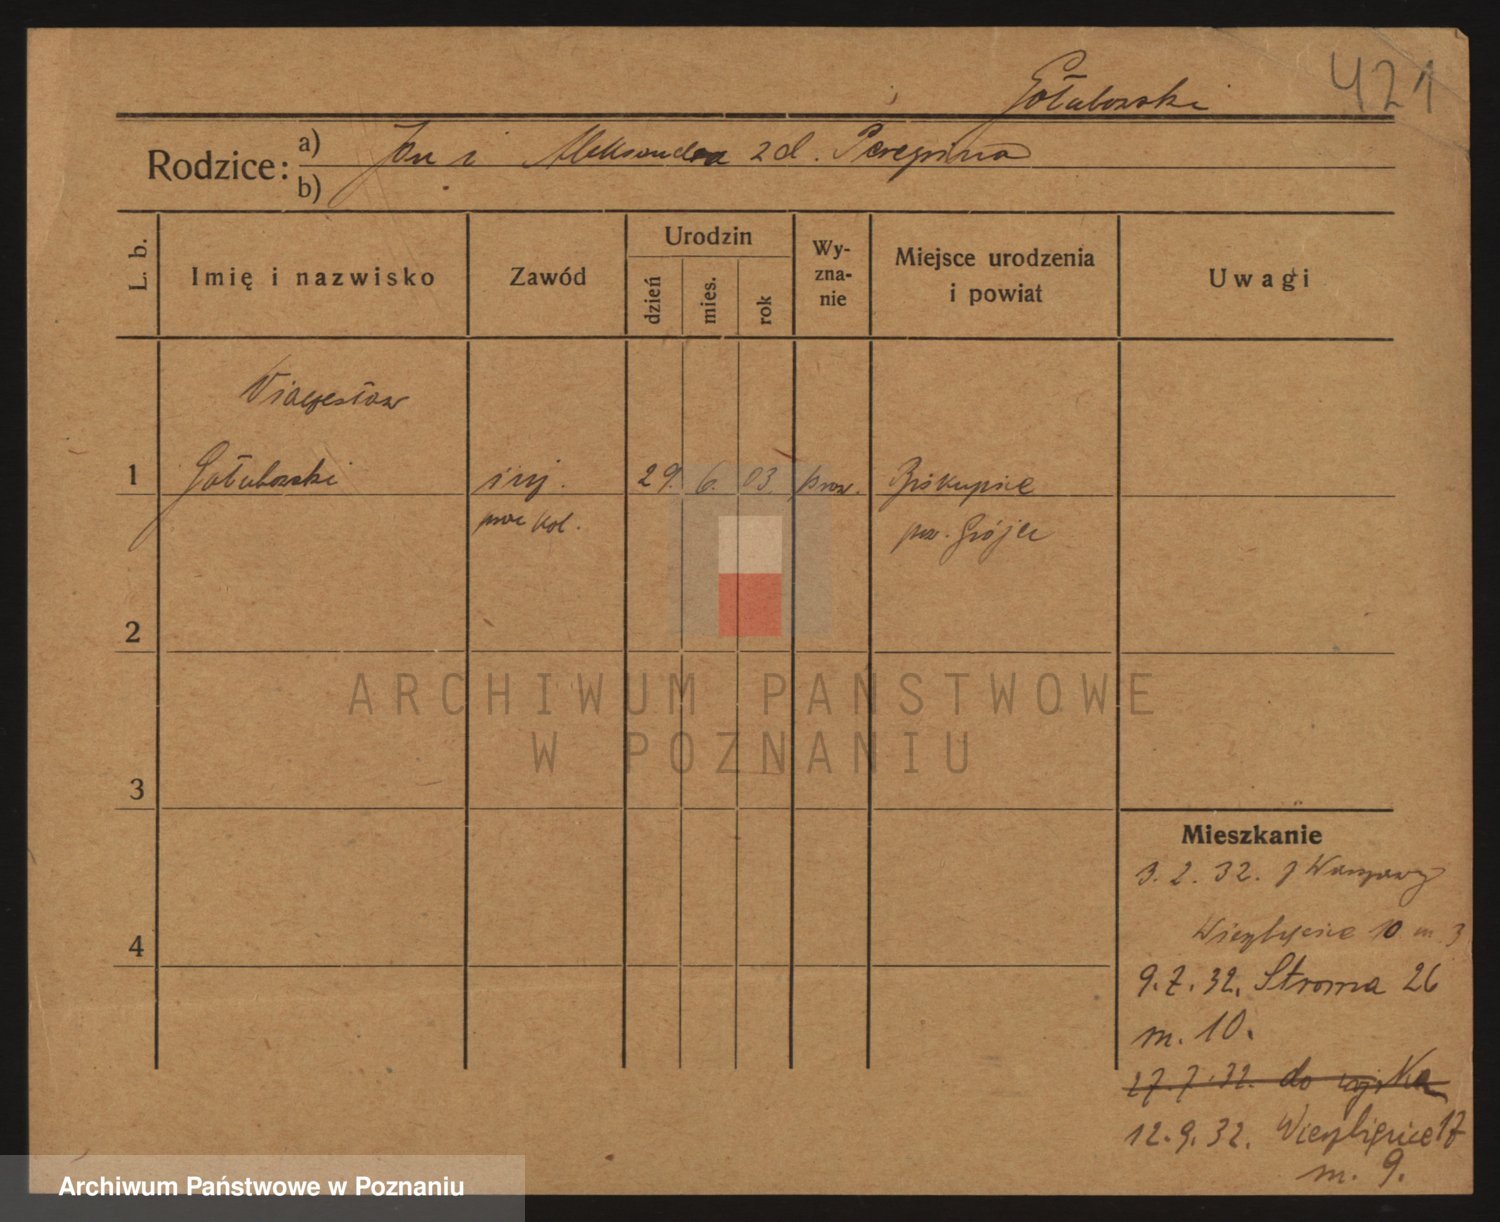 Gołubowski
421
Rodzice: a) Jan i Aleksandra zd. Peregrina
b)
L. b.
Imię i nazwisko
Zawód
Urodzin
dzień
mies.
rok
Wy-
zna-
nie
Miejsce urodzenia
i powiat
Uwagi
Wiaczesław
1 Gołubowski inż. 29. 6. 03. praw. Biskupice
prac kol. pow. Grójec
2
3
4
ARCHIWUM PAŃSTWOWE
W POZNANIU
Mieszkanie
3. 2. 32. z Warszawy
Wierzbięcice 10 m. 3
9. 7. 32. Stroma 26
m. 10.
27. 7. 32. do wojska
12. 9. 32. Wierzbięcice 17
m. 9.
Archiwum Państwowe w Poznaniu